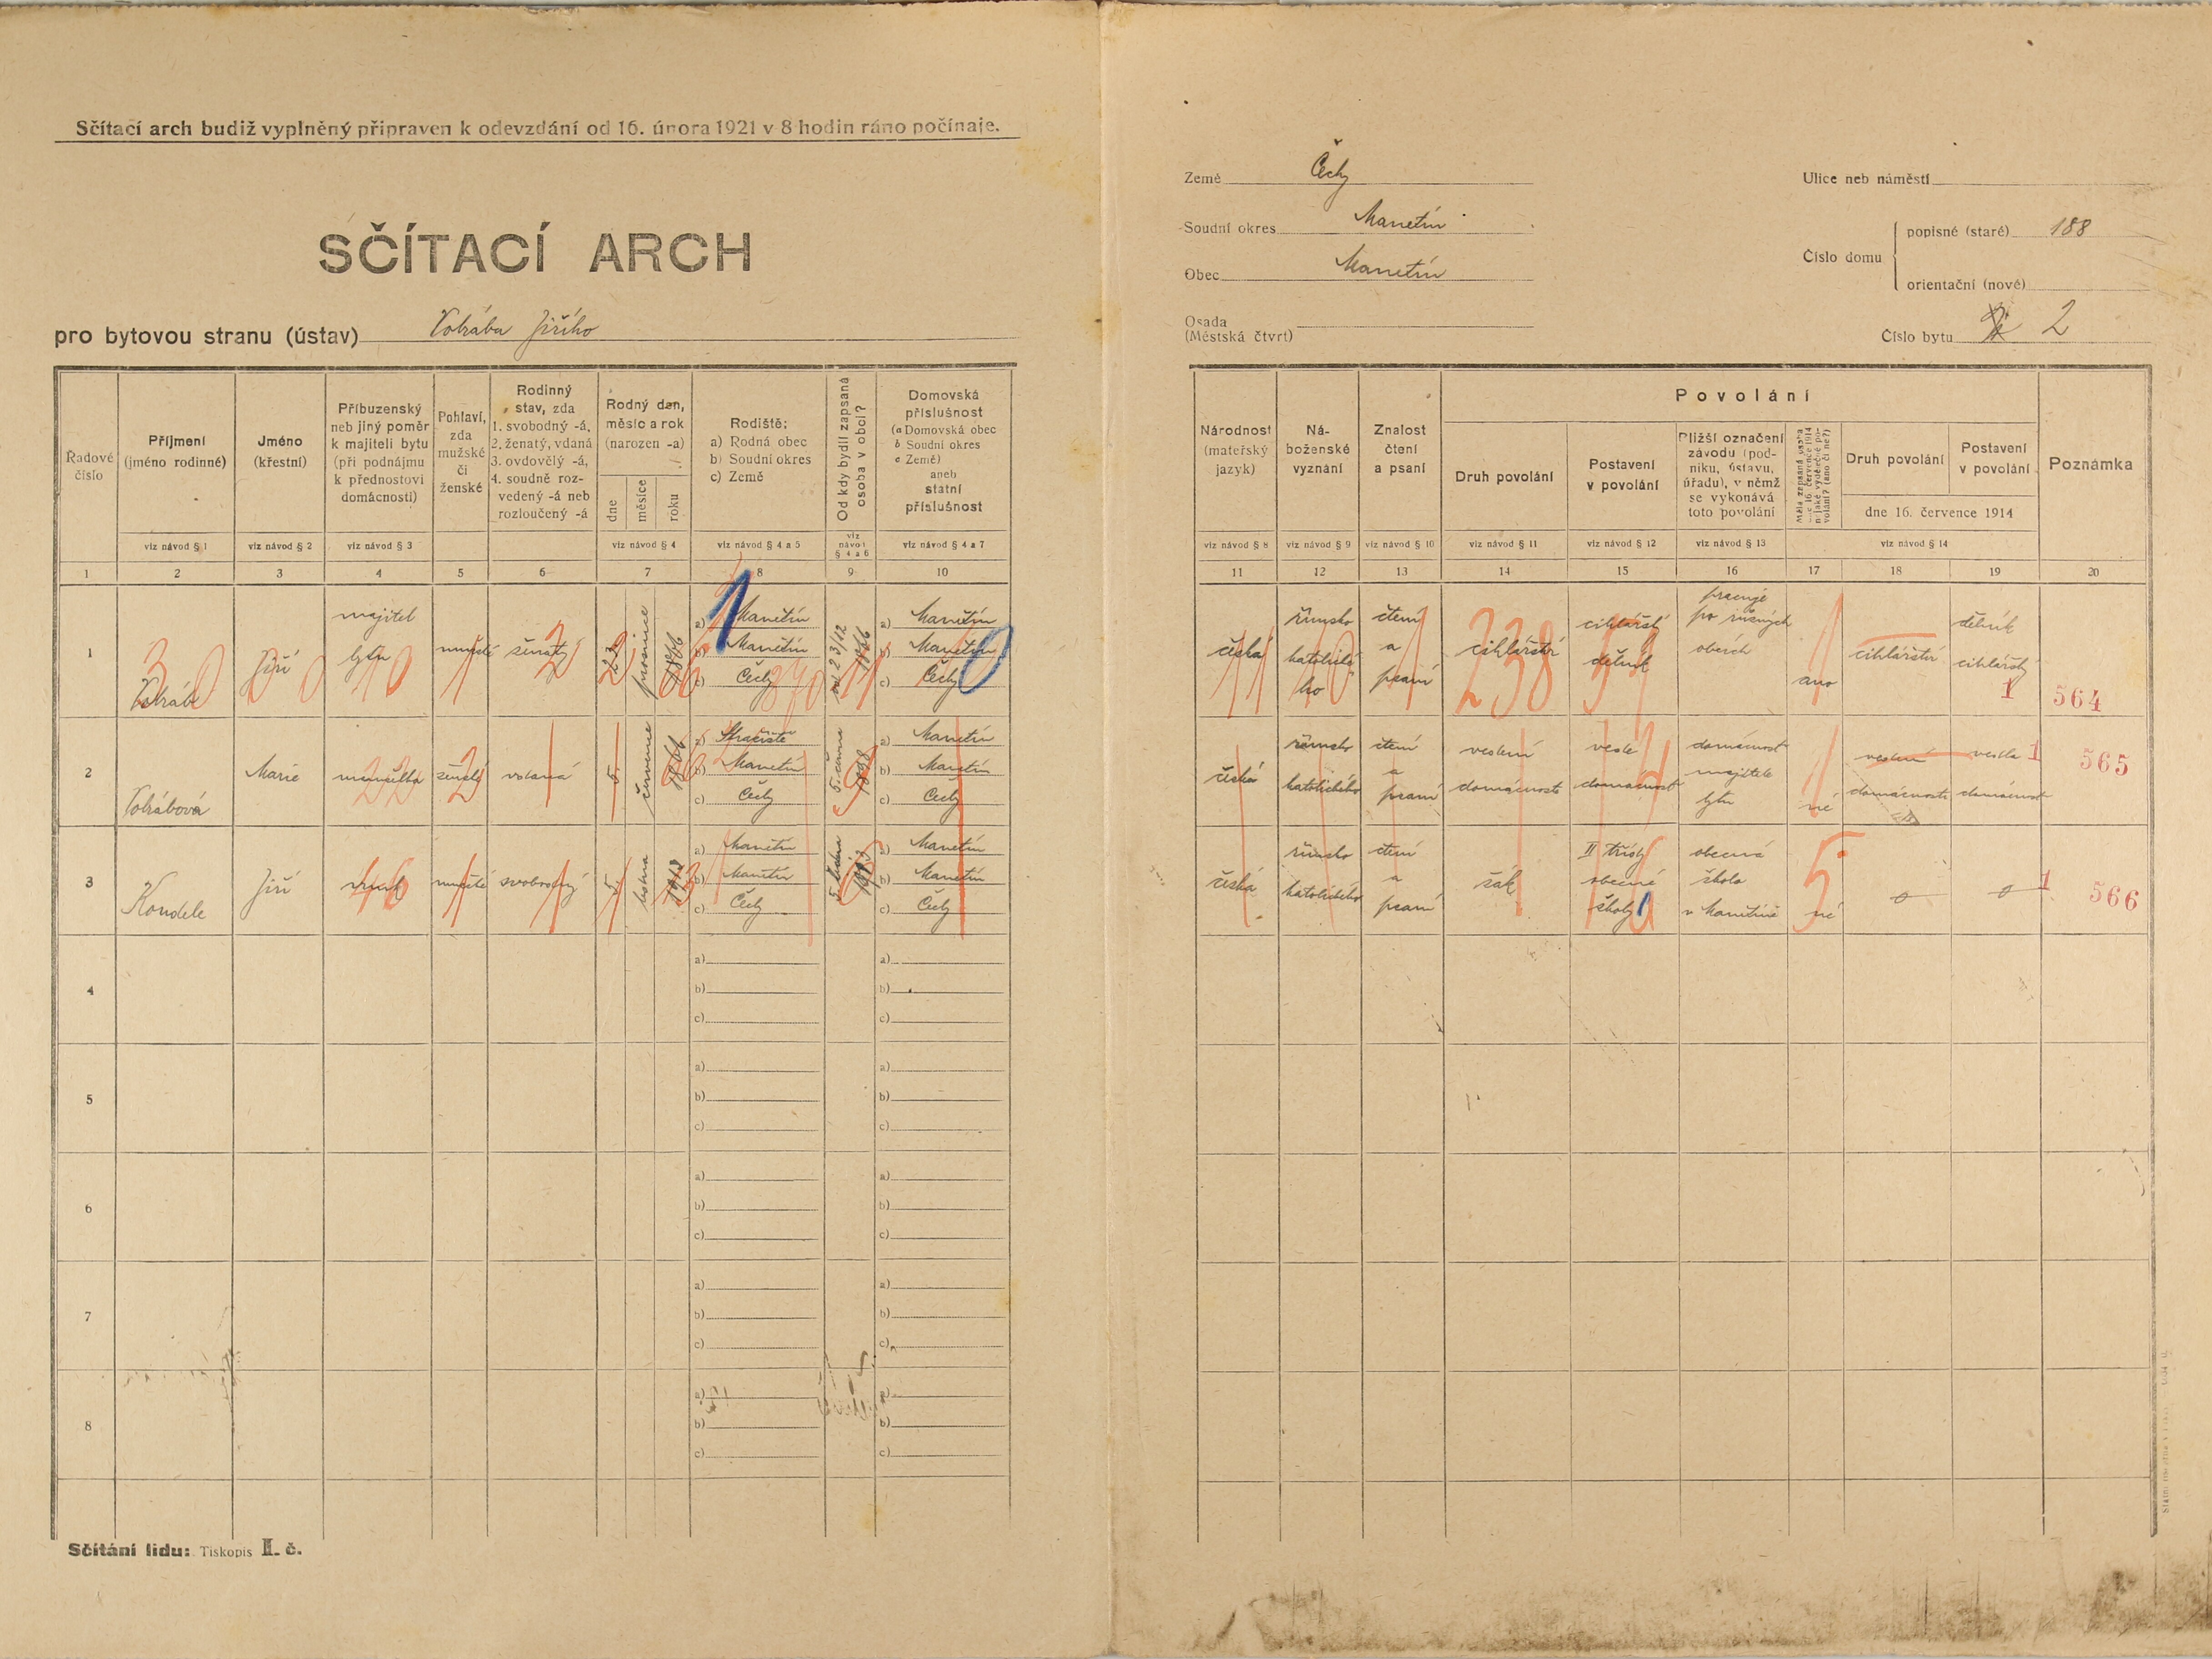 Sčítací arch budiž vyplněný připraven k odevzdání od 16. února 1921 v 8 hodin ráno počínaje.
SČÍTACÍ ARCH
pro bytovou stranu (ústav) Votrába Jiřího
Země Čechy
Soudní okres Manetín
Obec Manetín
Osada
(Městská čtvrt)
Ulice neb náměstí
Číslo domu
popisné (staré) 188
orientační (nové)
Číslo bytu 2
Řadové číslo
Příjmení (jméno rodinné)
viz návod § 1
Jméno (křestní)
viz návod § 2
Příbuzenský neb jiný poměr k majiteli bytu (při podnájmu k přednostovi domácnosti)
viz návod § 3
Pohlaví, zda mužské či ženské
Rodinný stav, zda 1. svobodný -á, 2. ženatý, vdaná 3. ovdovělý -á, 4. soudně rozvedený -á neb rozloučený -á
Rodný den, měsíc a rok (narozen -a)
dne měsíce roku
viz návod § 4
Rodiště:
a) Rodná obec
b) Soudní okres
c) Země
viz návod § 4 a 5
Od kdy bydlí zapsaná osoba v obci?
viz návod § 4 a 6
Domovská příslušnost
(a Domovská obec
b Soudní okres
c Země)
aneb
státní příslušnost
viz návod § 4 a 7
1 2 3 4 5 6 7 8 9 10
Národnost (mateřský jazyk)
viz návod § 8
Náboženské vyznání
viz návod § 9
Znalost čtení a psaní
viz návod § 10
Povolání
Druh povolání
viz návod § 11
Postavení v povolání
viz návod § 12
Bližší označení závodu (podniku, ústavu, úřadu), v němž se vykonává toto povolání
viz návod § 13
Měla zapsaná osoba dne 16. července 1914 nějaké výdělečné povolání? (ano či ne?)
Druh povolání
Postavení v povolání
dne 16. července 1914
viz návod § 14
Poznámka
11 12 13 14 15 16 17 18 19 20
1 Votrába Jiří majitel bytu mužské ženatý 23 prosince 1866
a) Manětín
b) Manětín
c) Čechy
od 23/12 1866
a) Manětín
b) Manětín
c) Čechy
česká římsko katolického čtení a psaní cihlářství cihlářský dělník pracuje po různých obcích ano cihlářství dělník cihlářský 564
2 Votrábová Marie manželka ženské vdaná 5. července 1866
a)
b) Manetín
c) Čechy
1898
a) Manetín
b) Manetín
c) Čechy
česká římsko katolického čtení a psaní vedení domácnosti vede domácnost domácnost majitele bytu ne vedení domácnosti vedla domácnost 565
3 Kondele Jiří vnuk mužské svobodný 5. ledna
a) Manětín
b) Manětín
c) Čechy
5. ledna
a) Manetín
b) Manetín
c) Čechy
česká římsko katolického čtení a psaní žák II třídy obecné školy obecná škola v Manětíně ne 0 0 566
4
a)
b)
c)
a)
b)
c)
5
a)
b)
c)
a)
b)
c)
6
a)
b)
c)
a)
b)
c)
7
a)
b)
c)
a)
b)
c)
8
a)
b)
c)
a)
b)
c)
Sčítání lidu: Tiskopis II. č.